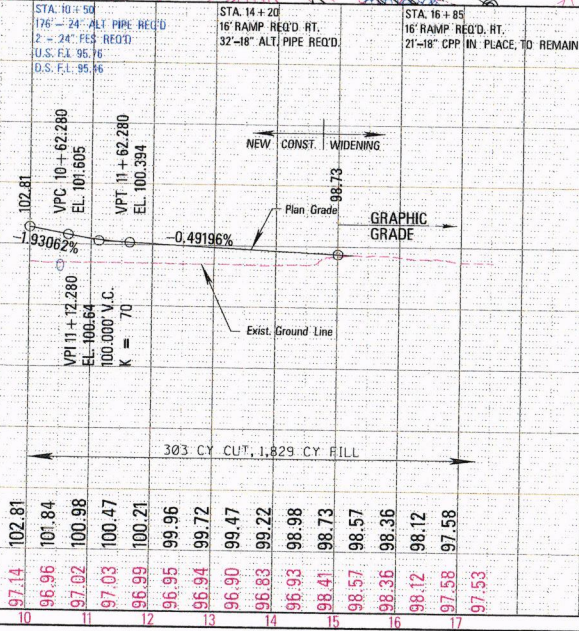 STA. 10 + 50
176' - 24" ALT PIPE REQ'D
2 - 24" FES REQ'D
U.S. F.L. 95.76
D.S. F.L. 95.46
STA. 14 + 20
16' RAMP REQ'D. RT.
32'-18" ALT. PIPE REQ'D.
STA. 16 + 85
16' RAMP REQ'D. RT.
21'-18" CPP IN PLACE, TO REMAIN
102.81
VPC 10 + 62.280
EL. 101.605
VPT 11 + 62.280
EL. 100.394
NEW CONST. WIDENING
98.73
Plan Grade
GRAPHIC
GRADE
-1.93062%
-0.49196%
VPI 11 + 12.280
EL. 100.64
100.000' V.C.
K = 70
Exist. Ground Line
303 CY CUT, 1,829 CY FILL
102.81 101.84 100.98 100.47 100.21 99.96 99.72 99.47 99.22 98.98 98.73 98.57 98.36 98.12 97.58
97.14 96.96 97.02 97.03 96.99 96.95 96.94 96.90 96.83 96.93 98.41 98.57 98.36 98.12 97.58 97.53
10 11 12 13 14 15 16 17